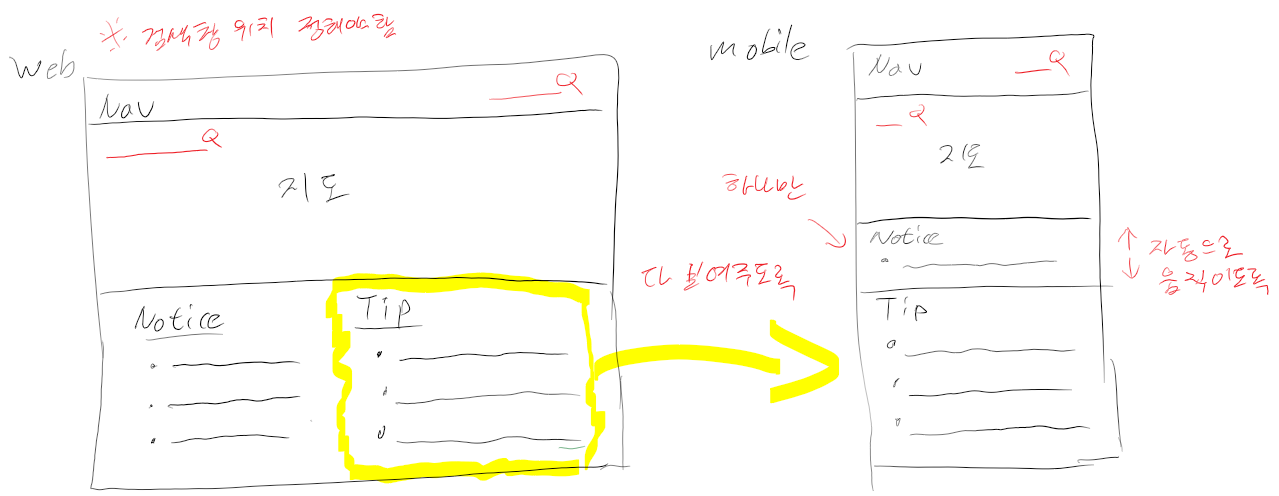 ※ 검색창 위치 정해야함
Web
Nav
지도
Notice
Tip
다 보여주도록
mobile
Nav
지도
하나만
Notice
자동으로
움직이도록
Tip